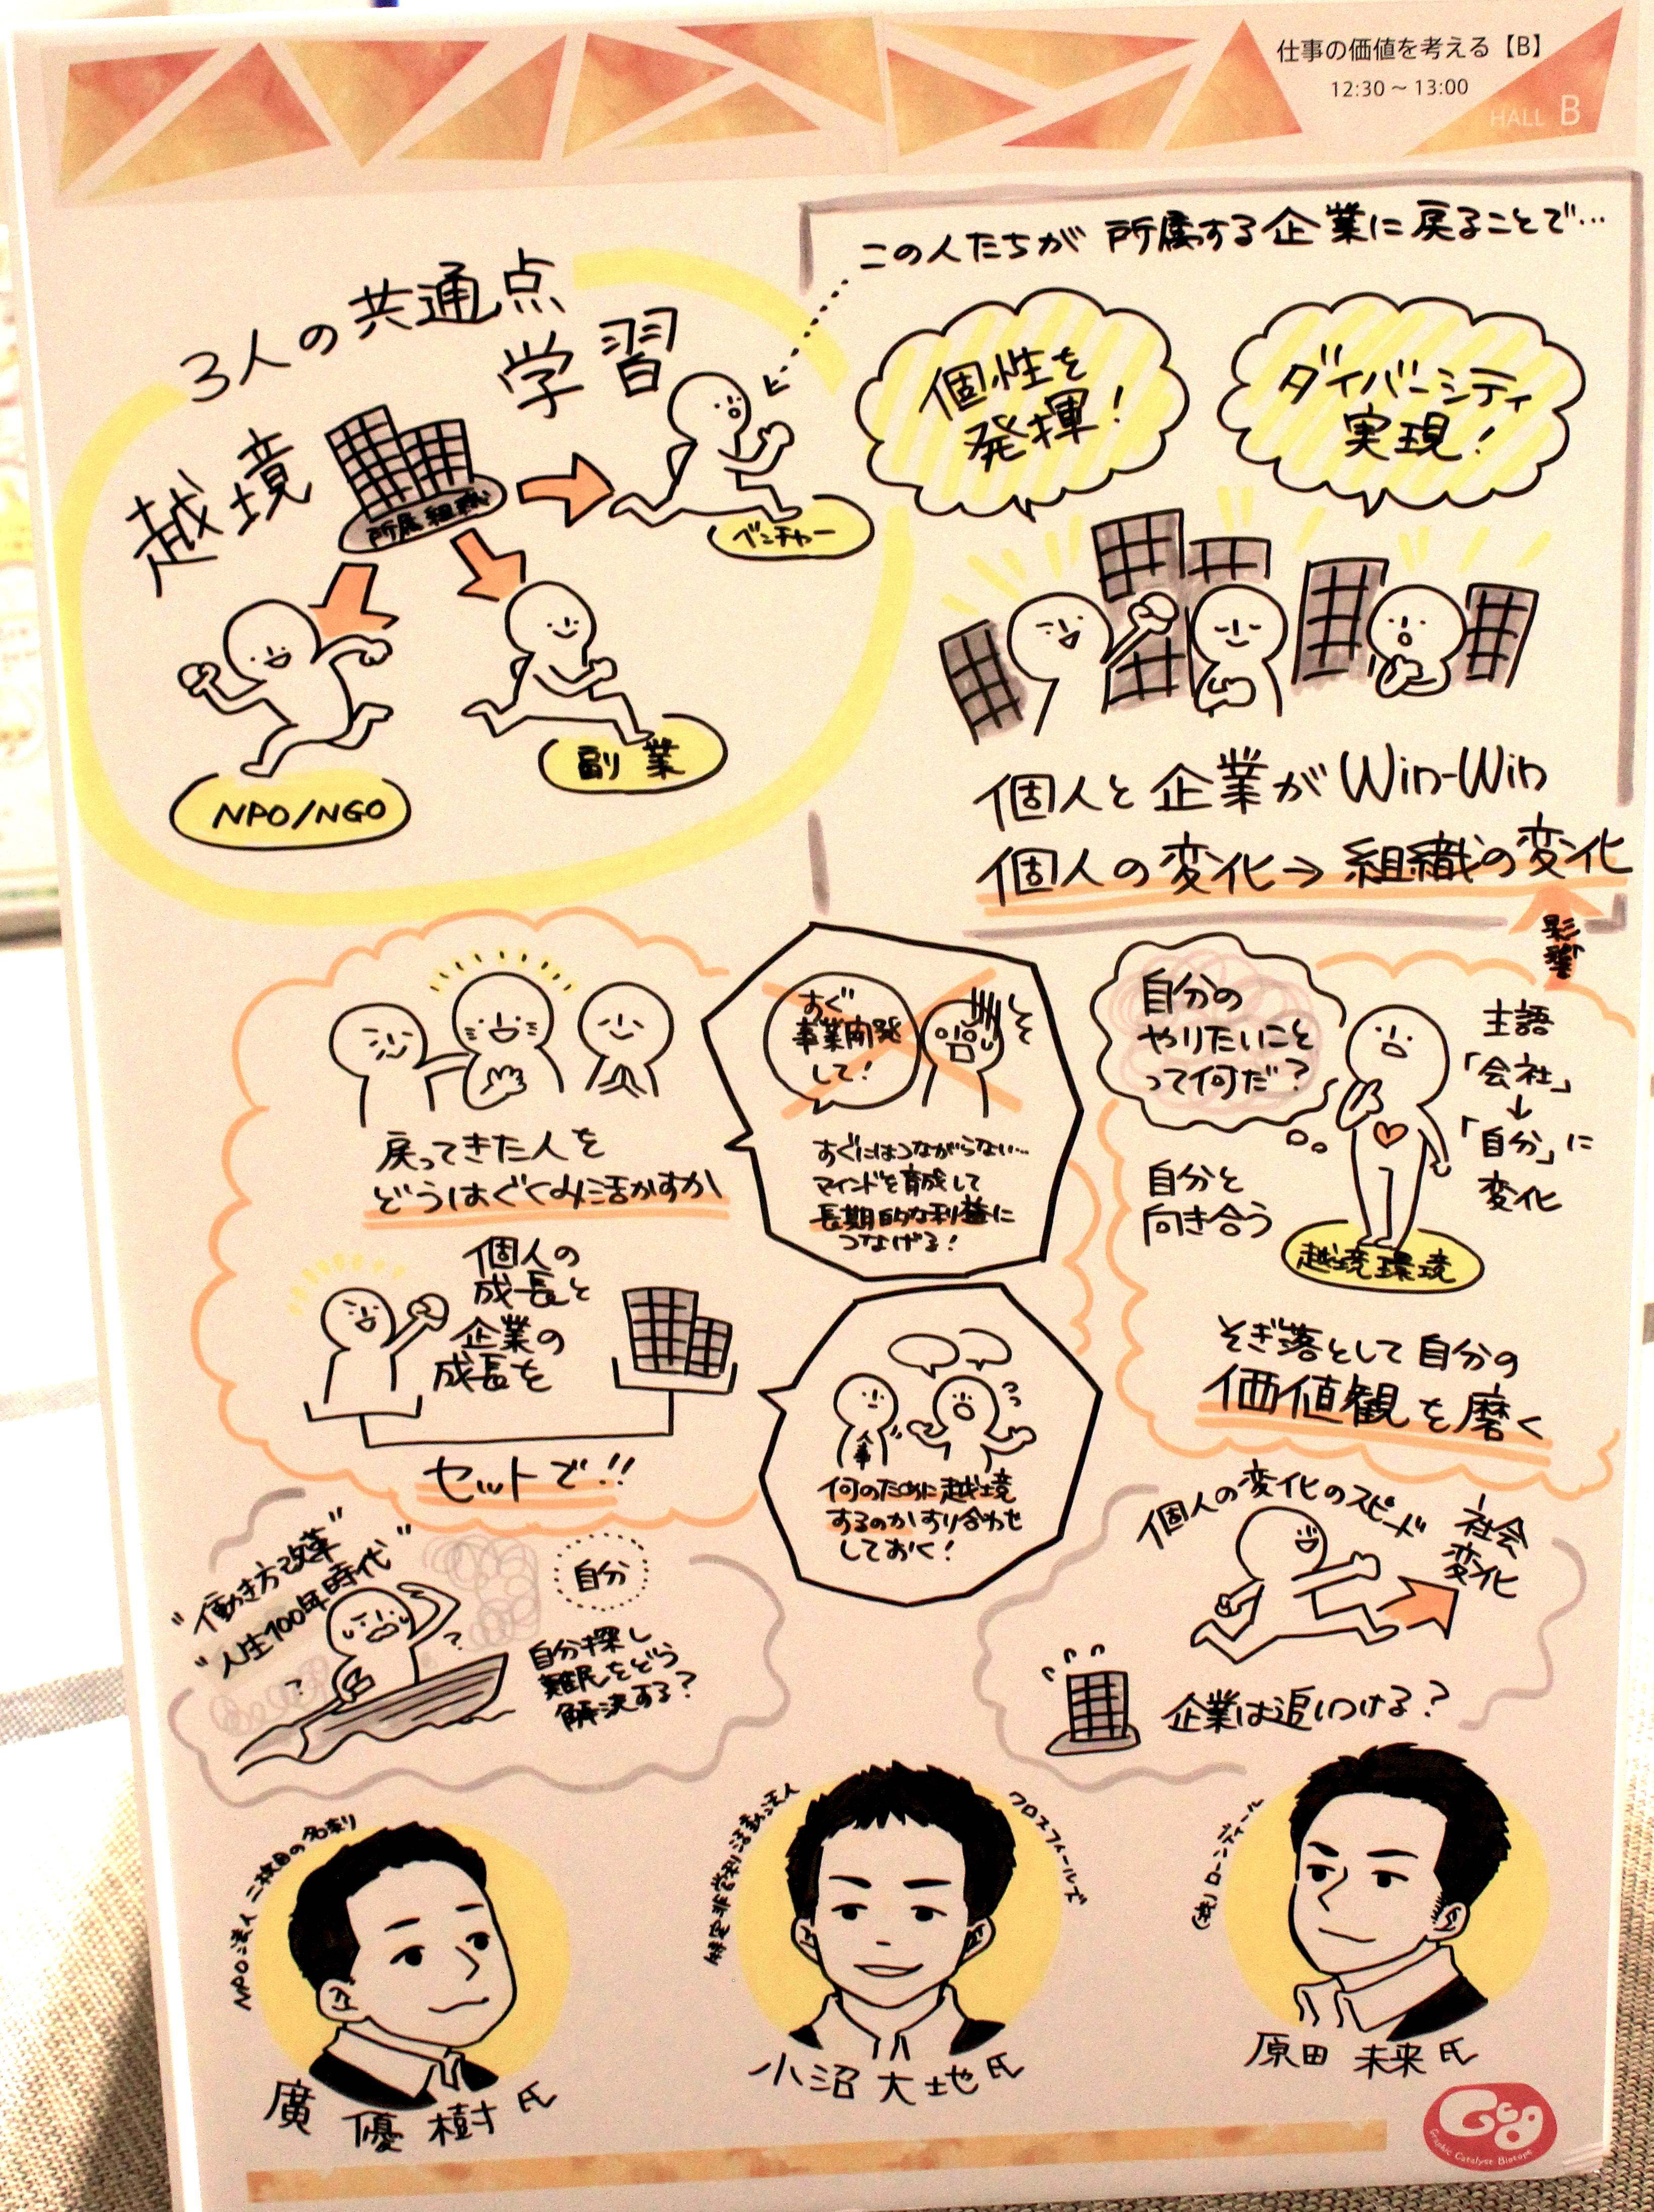 仕事の価値を考える【B】
12:30～13:00
HALL B
3人の共通点
越境
学習
所属組織
ベンチャー
副業
NPO/NGO
この人たちが 所属する企業に戻ることで…
個性を
発揮!
ダイバーシティ
実現!
個人と企業がWin-Win
個人の変化→組織の変化
影響
戻ってきた人を
どうはぐくみ活かすか
個人の
成長と
企業の
成長を
セットで!!
すぐ
事業開発
して!
すぐにはつながらない…
マインドを育成して
長期的な利益に
つなげる!
人事
何のために越境
するのかすり合わせ
しておく!
自分の
やりたいこと
って何だ?
自分と
向き合う
主語
「会社」
↓
「自分」に
変化
越境環境
そぎ落として自分の
価値観を磨く
"働き方改革"
"人生100年時代"
?
?
自分
自分探し
難民をどう
解決する?
個人の変化のスピード
社会
変化
企業は追いつける?
NPO法人 二枚目の名刺
廣 優樹氏
特定非営利活動法人
クロスフィールズ
小沼大地氏
(株)ローンディール
原田 未来氏
GCB
Graphic Catalyst Biotope